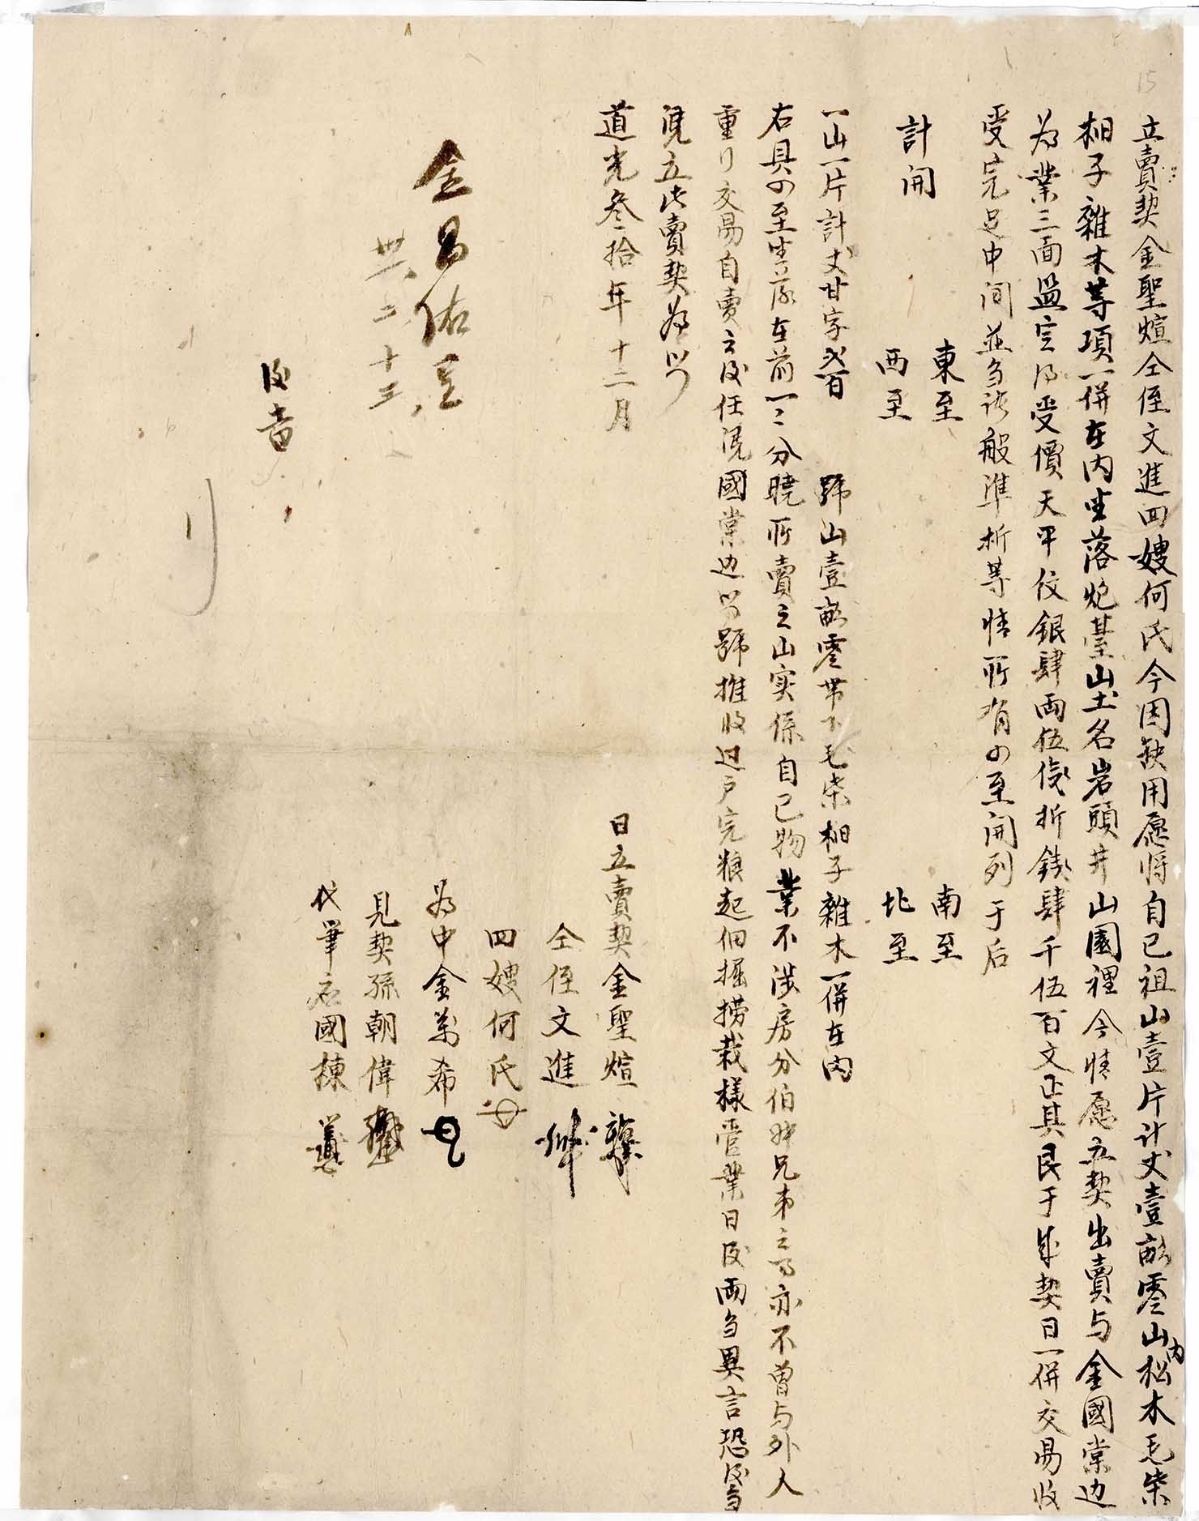 15
立賣契金聖煊仝侄文進四嫂何氏今因缺用愿将自己祖山壹片计丈壹畝零山内松木毛柴
桕子雜木等項一併在内坐落炮基山土名岩頭井山園裡今情愿立契出賣与金國棠边
为業三面湓定得受價天平佼銀肆両伍伐折錢肆千伍百文正其艮于成契日一併交易收
受完足中间並刍该般準折等情所有四至開列于后
計開
東至 南至
西至 北至
一山一片計丈甘字 號山壹畝零带下毛柴桕子雜木一併在内
右具四至坐落在前一二分曉所賣之山实係自己物業不涉房分伯叔兄弟之事亦不曾与外人
重行交易自賣之後任凭國棠边照號推收过户完粮起佃掘捞栽样管業日後両刍異言恐後刍
凭立此賣契为照
道光叁拾年十二月 日立賣契金聖煊
仝侄文進
四嫂何氏
为中金萬希
見契孫朝偉
代筆 國棟
金昌佑
卅二十三